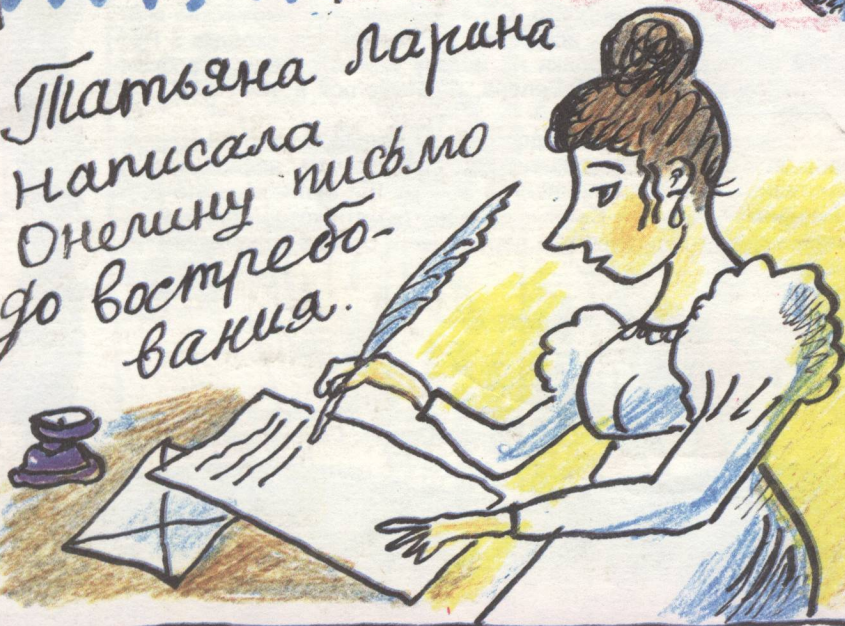 Татьяна Ларина
написала
Онегину письмо
до востребо-
вания.